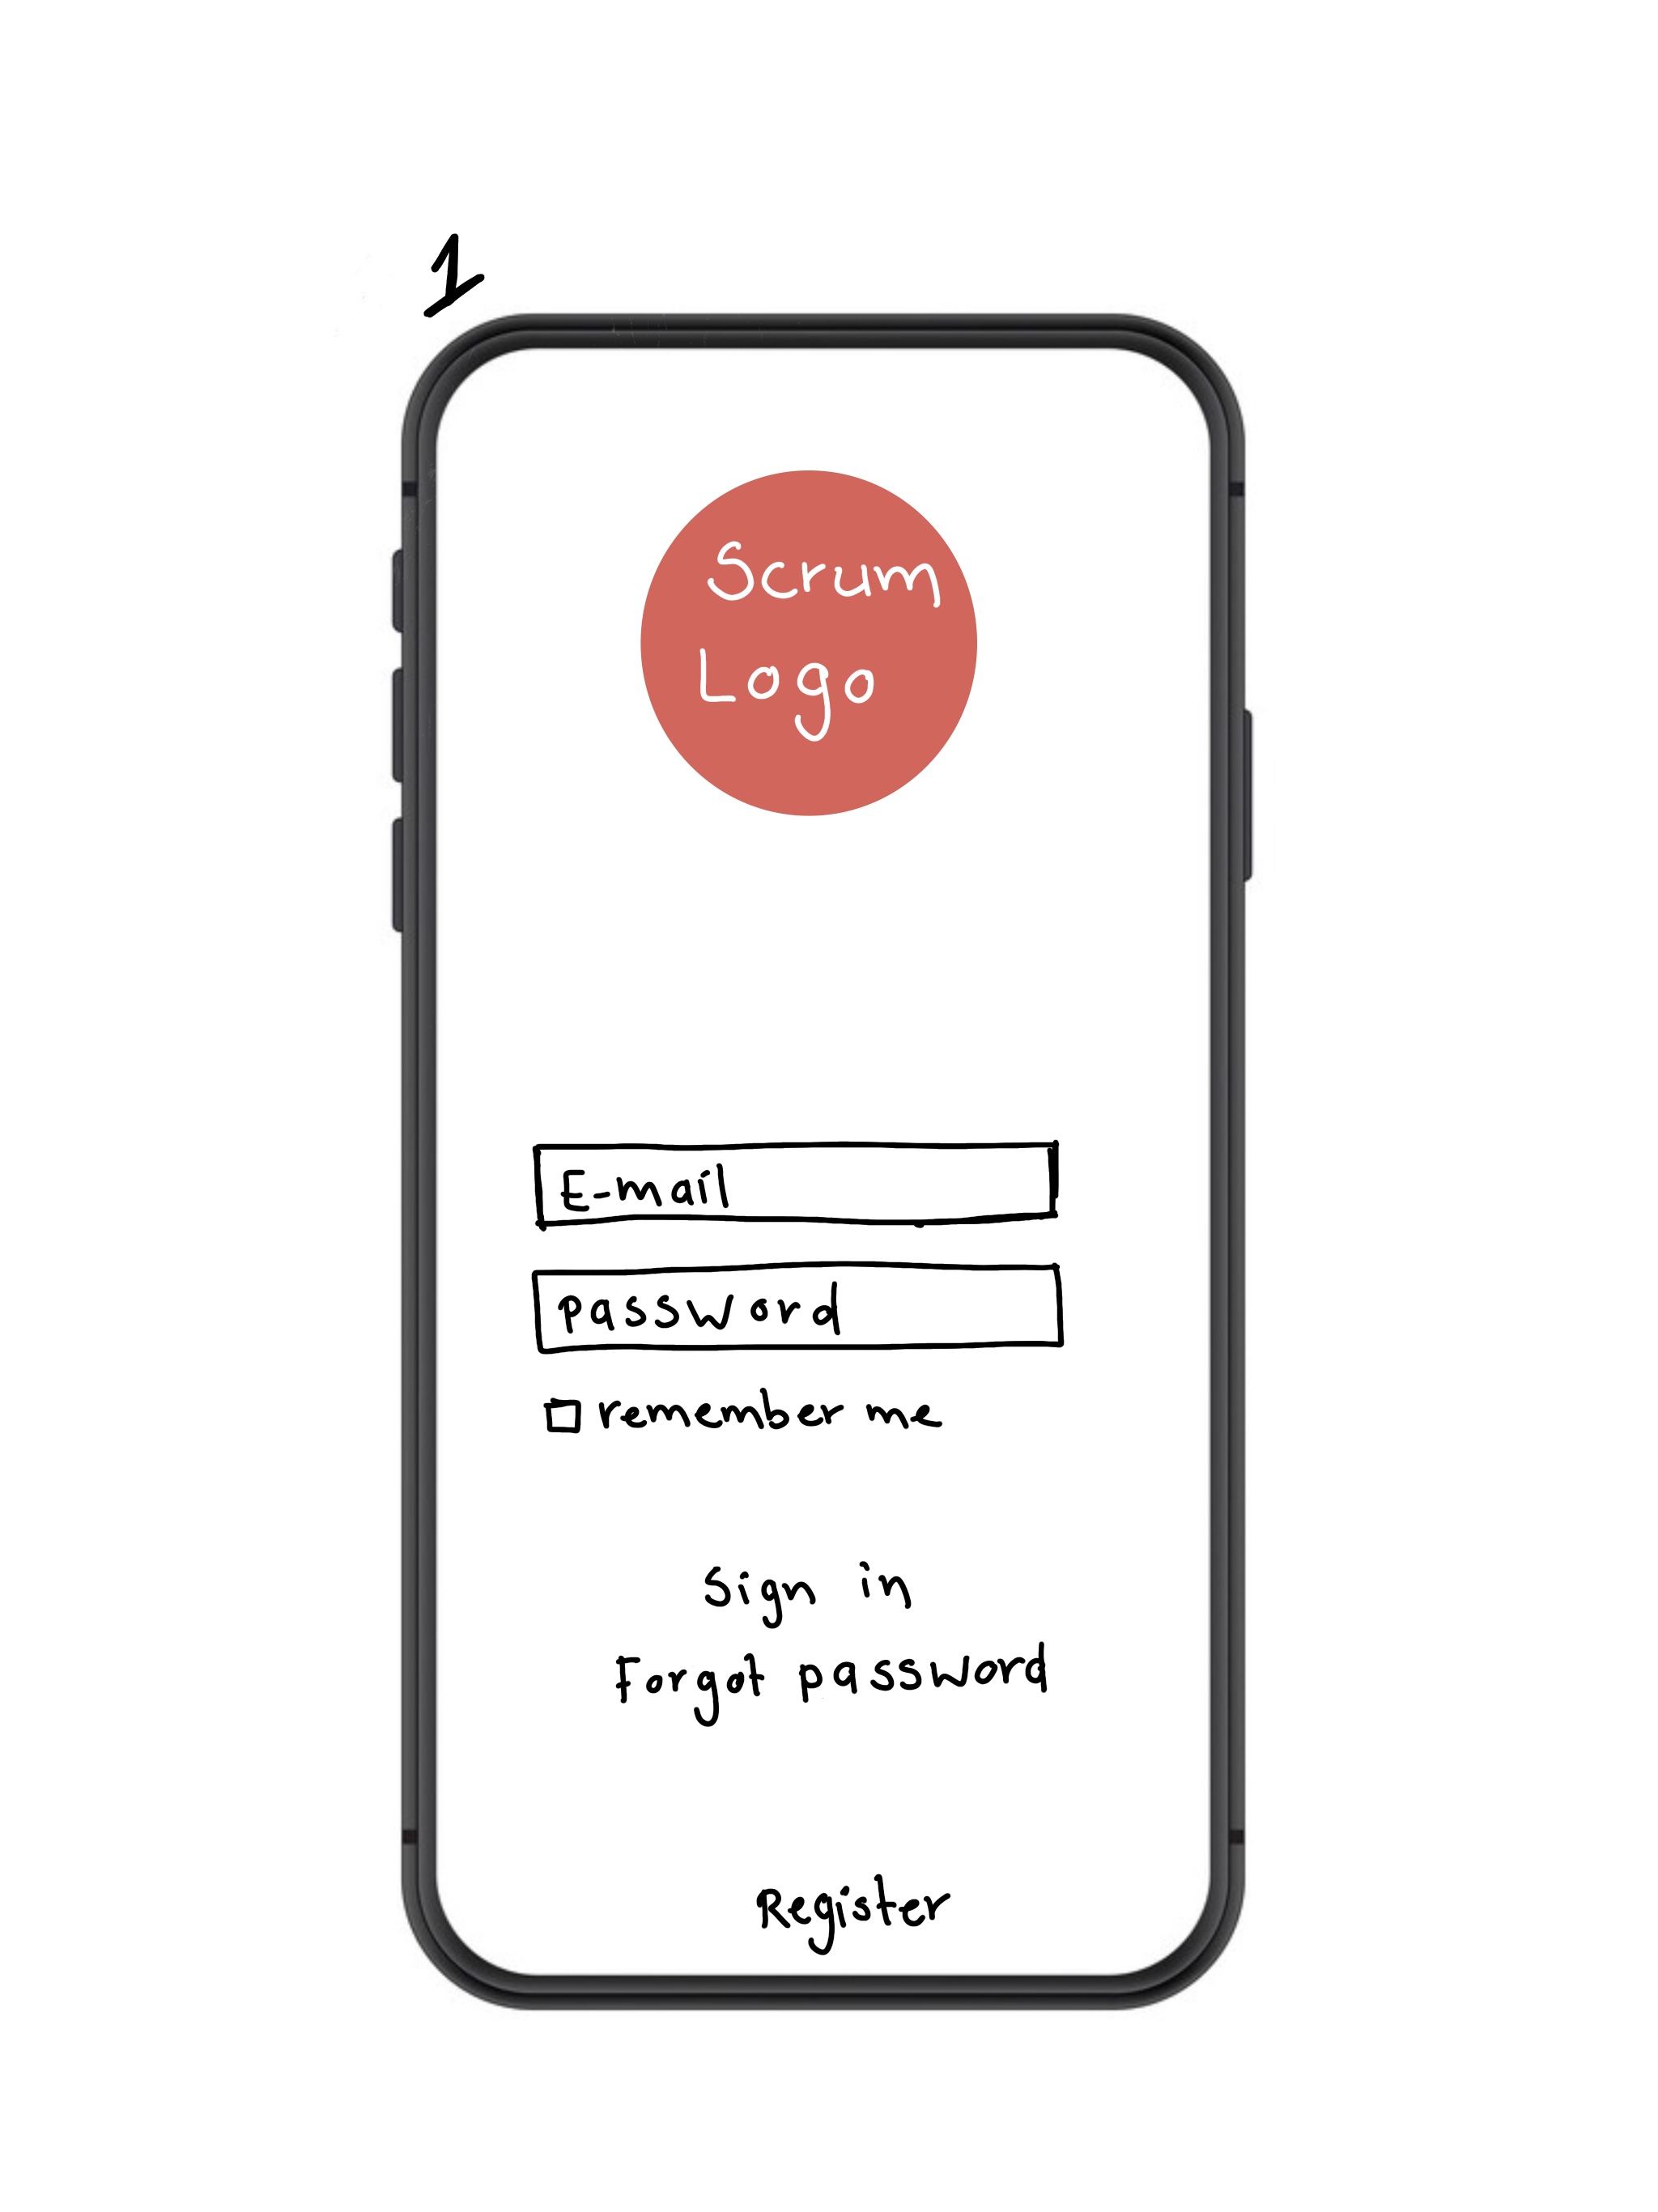 1
Scrum
Logo
E-mail
password
remember me
Sign in
Forgot password
Register